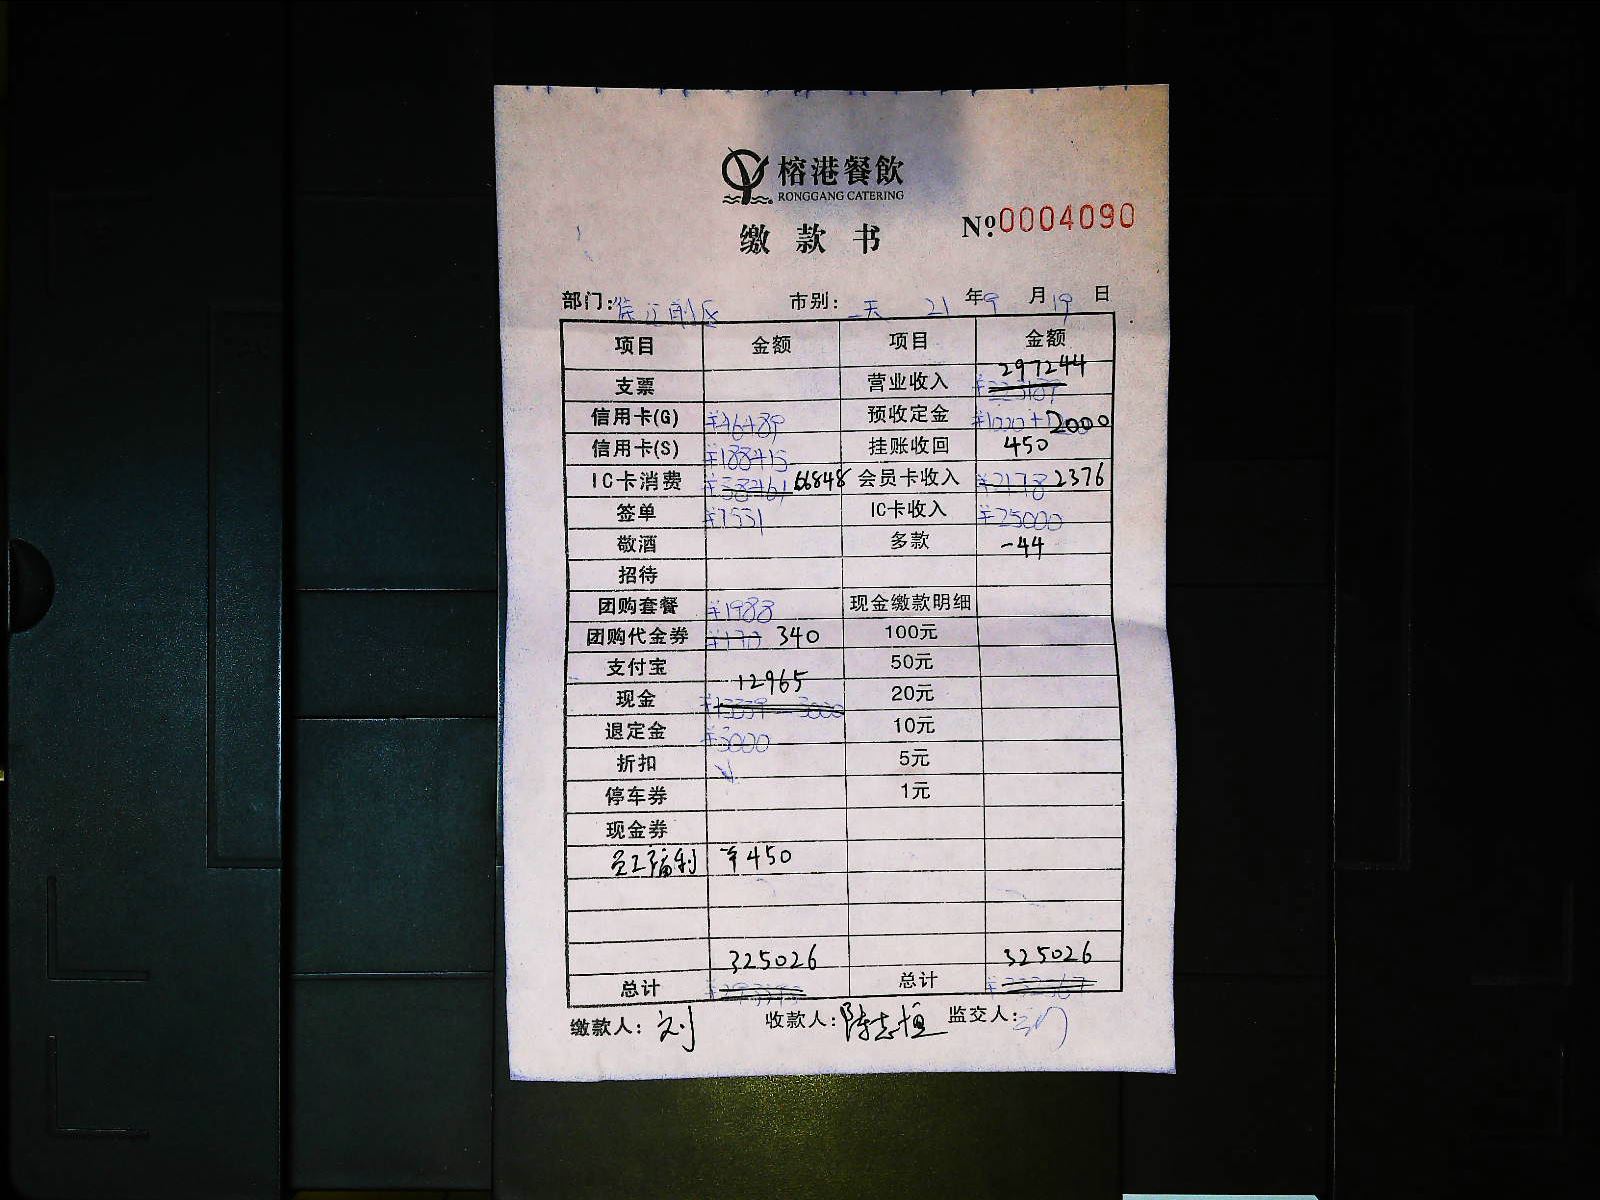 榕港餐飲
RONGGANG CATERING
缴款书
№0004090
部门: 市别: 21 年 9 月 19 日
项目 金额 项目 金额
支票 营业收入 297244
信用卡(G) ¥46489 预收定金 ¥1000+ 2000
信用卡(S) ¥188415 挂账收回 450
IC卡消费 66848 会员卡收入 ¥2178 2376
签单 ¥7531 IC卡收入 ¥25000
敬酒 多款 -44
招待
团购套餐 ¥1988 现金缴款明细
团购代金券 ¥170 340 100元
支付宝 50元
现金 12965 20元
退定金 ¥3000 10元
折扣 5元
停车券 1元
现金券
员工福利 ¥450
总计 325026 总计 325026
缴款人: 刘 收款人: 陈志恒 监交人: